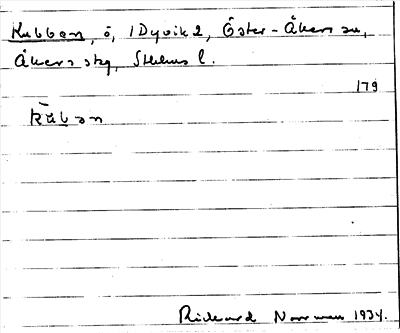 Kubban, ö, 1 Dyvik 2, Öster-Åkers sn,
Åkers skg, Sthlms l.
179
Rickard Norrman 1934.